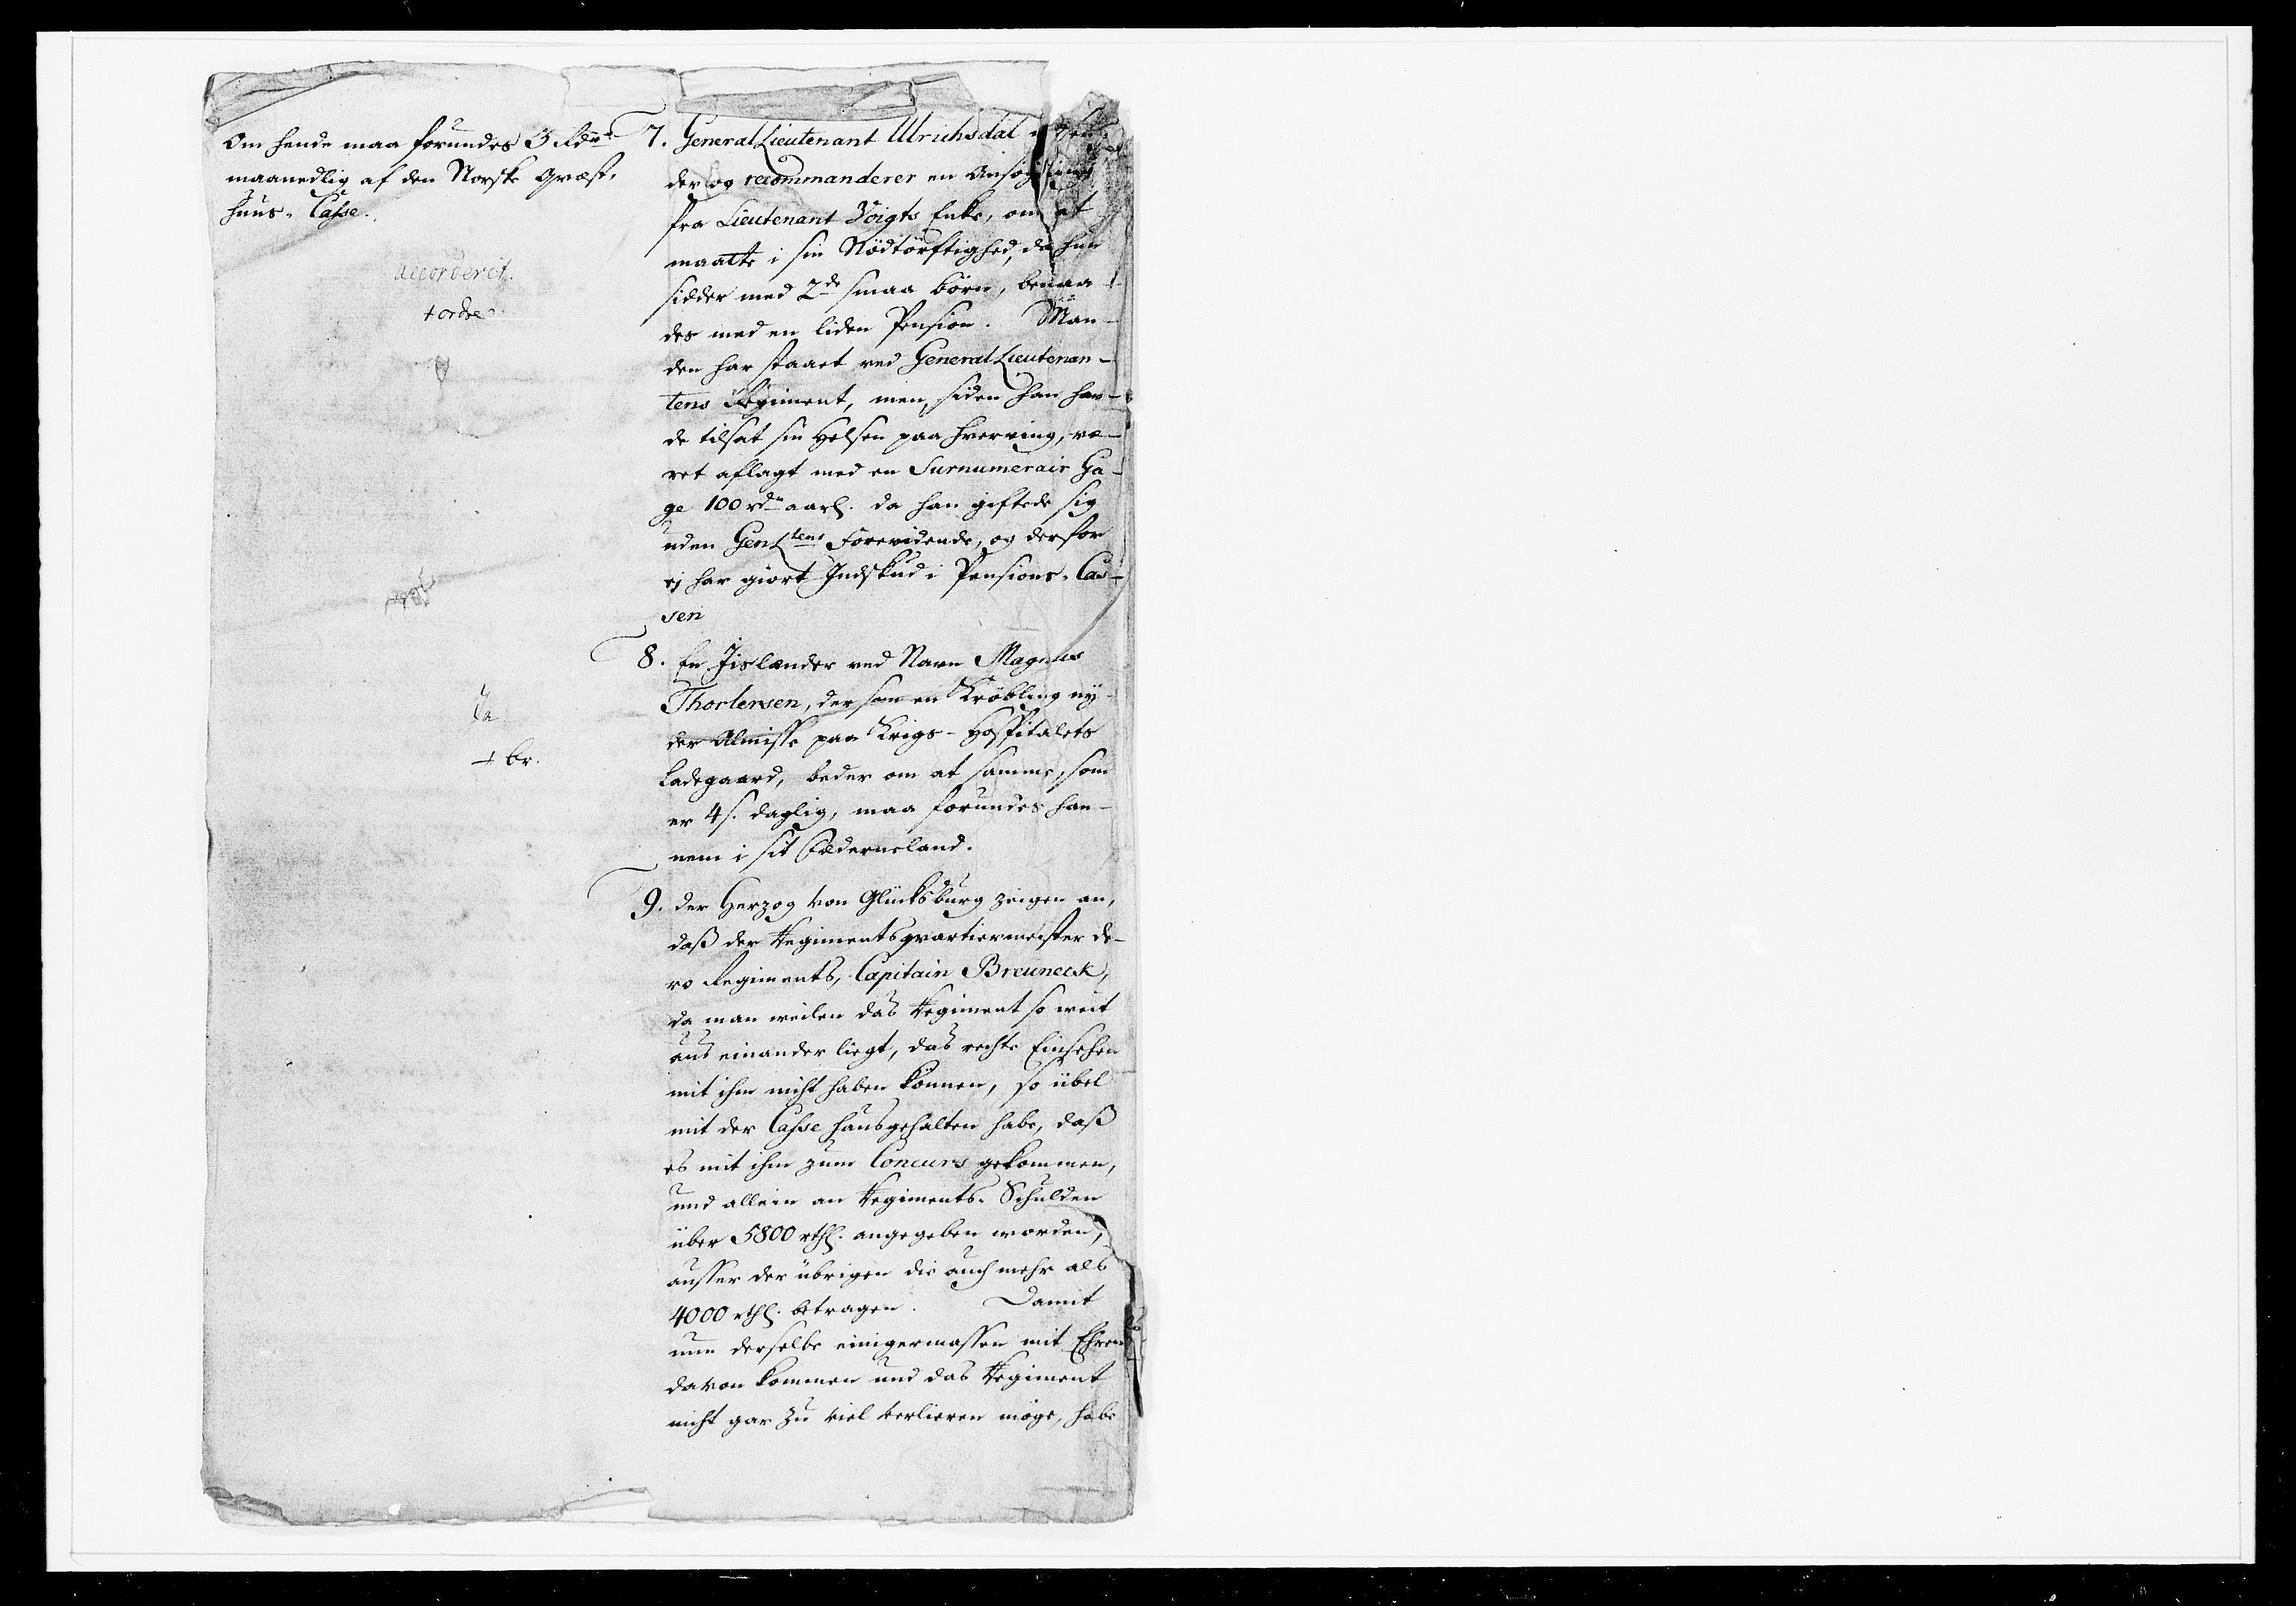 Om hende maa forundes 3 Rdr
maanedlig af den Norske Qvæst-
huus-Casse.
accorderet.
+ ordre
7. General Lieutenant Ulrichsdal
der og recommanderer en Ansøgning
fra Lieutenant Voigts Enke, om at
maatte i sin Nødtørftighed, da hun
sidder med 2de smaa børn, benaa-
des med en liden Pension. Man-
den har staaet ved General Lieutenan-
tens Regiment, men, siden han hav-
de tilsat sin Helsen paa Hverving, væ-
ret aflagt med en Surnumerair Ga-
ge 100 rdr aarl. da han giftede sig
uden GenLtens Forevidende, og derfor
ej har giort Indskud i Pensions-Cas-
sen
8. En Jislænder ved Navn Magnus
Thorlensen, der som en Krøbling ny-
der Almisse paa Krigs-Hospitalets
Ladegaard, beder om at samme, som
er 4 s. daglig, maa forundes han-
nem i sit Fæderneland.
Ja
+ br.
9. der Herzog von Glücksburg zeigen an,
daß der Regimentsqvartiermeister de-
ro Regiments, Capitain Breuneck,
da man weilen das Regiment so weit
aus einander liegt, das rechte Einsehen
mit ihm nicht haben können, so übel
mit der Casse hausgehalten habe, daß
es mit ihm zum Concurs gekommen,
und allein an Regiments-Schulden
über 5800 rthl. angegeben worden,
ausser der übrigen die auch mehr als
4000 rthl. betragen. Damit
nun derselbe einigermassen mit Ehren
davon kommen und das Regiment
nicht gar zu viel verlieren möge, habe